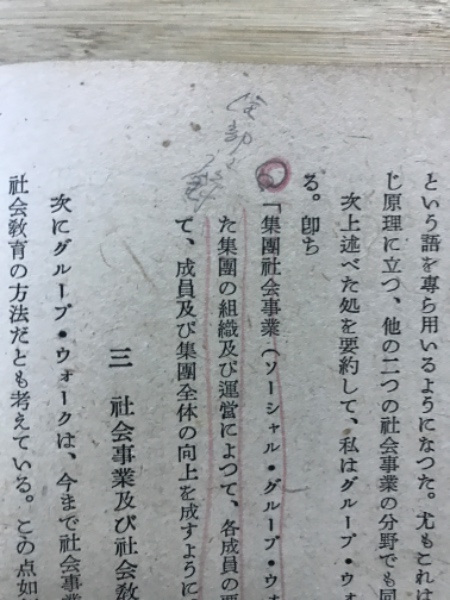 という語を専ら用いるようになつた。尤もこれは
じ原理に立つ、他の二つの社会事業の分野でも同
次上述べた処を要約して、私はグループ・ウォ
る。卽ち
「集團社会事業(ソーシャル・グループ・ウォ
た集團の組織及び運営によつて、各成員の要
て、成員及び集團全体の向上を成すように
三　社会事業及び社会敎
次にグループ・ウォークは、今まで社会事業
社会敎育の方法だとも考えている。この点如